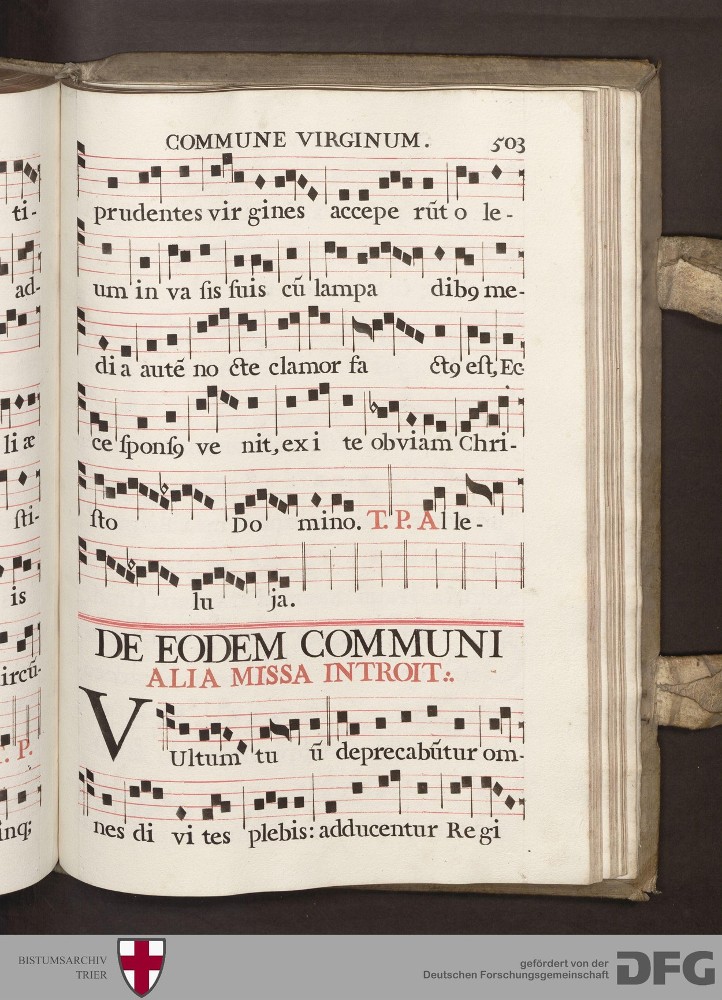 COMMUNE VIRGINUM. 503
prudentes vir gines accepe rūt o le-
um in va sis suis cū lampa dib9 me-
di a autē no cte clamor fa ct9 est, Ec
ce spons9 ve nit, ex i te obviam Chri-
sto Do mino. T. P. Al le-
lu ja.
DE EODEM COMMUNI
ALIA MISSA INTROIT.
VUltum tu ū deprecabūtur om-
nes di vi tes plebis: adducentur Re gi
ti-
ad-
li æ
sti-
is
ircū-
. P.
inq;
BISTUMSARCHIV
TRIER
gefördert von der
Deutschen Forschungsgemeinschaft
DFG